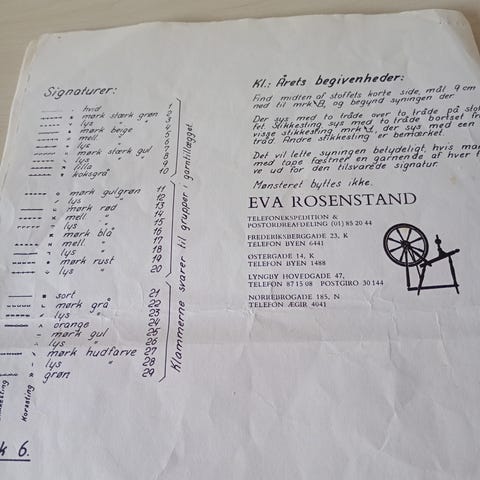 Signaturer:
hvid
mørk stærk grøn 3
lys " " 4
mørk beige 5
mell. " 6
lys " 7
mørk stærk gul 8
lys " "
lilla 9
koksgrå 10
mørk gulgrøn 11
lys " 12
mørk rød 13
mell. " 14
lys " 15
mørk blå 16
mell " 17
lys " 18
mørk rust 19
lys " 20
sort 21
mørk grå 22
lys " 23
orange 24
mørk gul 25
lys " 26
mørk hudfarve 27
lys " 28
grøn 29
Klammerne svarer til grupper i garntillægget.
Korssting
k 6.
Kl.: Årets begivenheder:
Find midten af stoffets korte side, mål 9 cm
ned til mrk B, og begynd syningen der.
Der sys med to tråde over to tråde på stof-
fet. Stikkesting sys med to tråde bortset fra
visse stikkesting mrk 1, der sys med een
tråd. Andre stikkesting er bemærket.
Det vil lette syningen betydeligt, hvis man
med tape fæstner en garnende af hver
ve ud for den tilsvarende signatur.
Mønsteret byttes ikke.
EVA ROSENSTAND
TELEFONEKSPEDITION &
POSTORDREAFDELING (01) 85 20 44
FREDERIKSBERGGADE 23, K
TELEFON BYEN 6441
ØSTERGADE 14, K
TELEFON BYEN 1488
LYNGBY HOVEDGADE 47,
TELEFON 87 15 08 POSTGIRO 30 144
NØRREBROGADE 185, N
TELEFON ÆGIR 4041